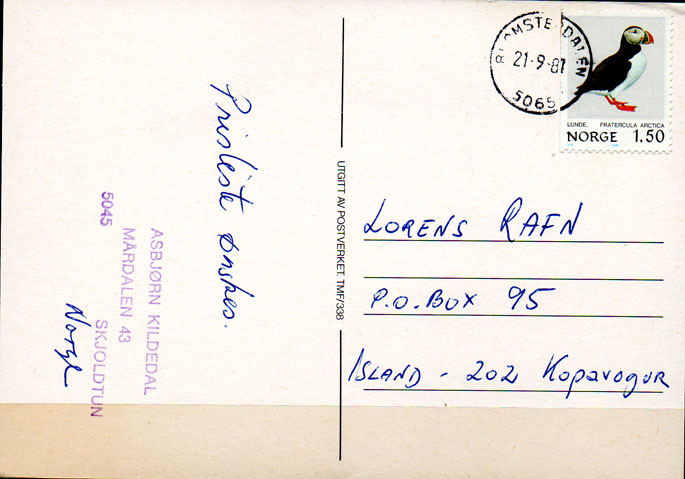 Prisliste ønskes.
ASBJØRN KILDEDAL
MÅRDALEN 43
5045 SKJOLDTUN
Norge
UTGITT AV POSTVERKET. TMF/338
BLOMSTERDALEN
21-9-81
5065
LUNDE. FRATERCULA ARCTICA
NORGE 1,50
LORENS RAFN
P.O. BOX 95
ISLAND - 202 Kopavogur